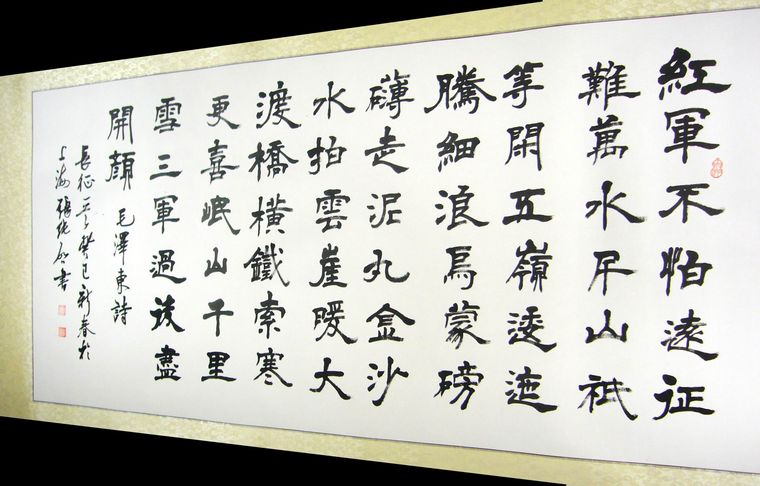 紅軍不怕遠征
難萬水千山祇
等閑五嶺逶迤
騰細浪烏蒙磅
礴走泥丸金沙
水拍雲崖暖大
渡橋橫鐵索寒
更喜岷山千里
雪三軍過後盡
開顏 毛澤東詩
長征 癸巳新春於
上海張書